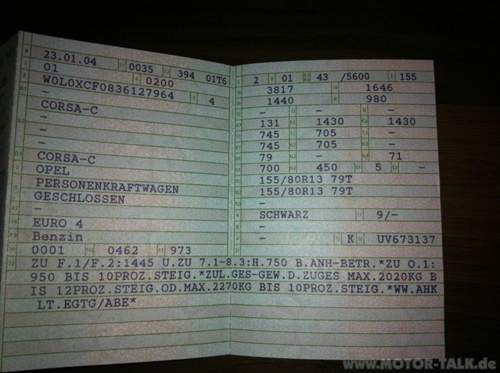 23.01.04 0035 394 01T6
01 0200
W0L0XCF0836127964 4
-
CORSA-C
-
-
-
CORSA-C
OPEL
PERSONENKRAFTWAGEN
GESCHLOSSEN
-
EURO 4
Benzin
0001 0462 973
2 01 43 /5600 155
3817 1646
1440 980
- - -
131 1430 1430
745 705 -
745 705 -
79 - 71
700 450 5 -
155/80R13 79T
155/80R13 79T
-
SCHWARZ 9/-
-
- K UV673137
ZU F.1/F.2:1445 U.ZU 7.1-8.3:H.750 B.ANH-BETR.*ZU O.1:
950 BIS 10PROZ.STEIG.*ZUL.GES-GEW.D.ZUGES MAX.2020KG B
IS 12PROZ.STEIG.OD.MAX.2270KG BIS 10PROZ.STEIG.*WW.AHK
LT.EGTG/ABE*
www.MOTOR-TALK.de